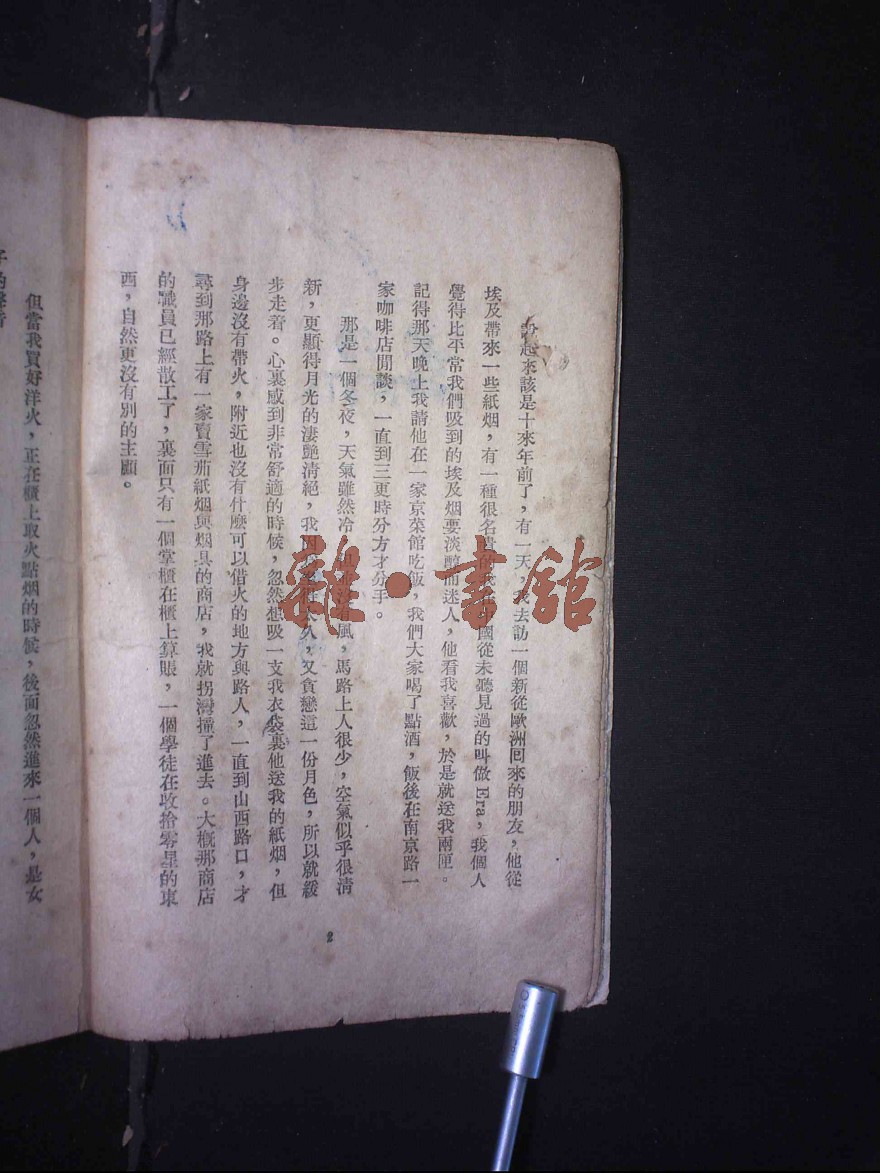 說起來該是十來年前了，有一天，我去訪一個新從歐洲回來的朋友，他從
埃及帶來一些紙烟，有一種很名貴的我在中國從未聽見過的叫做 Era，我個人
覺得比平常我們吸到的埃及烟要淡醇而迷人，他看我喜歡，於是就送我兩匣。
記得那天晚上我請他在一家京菜館吃飯，我們大家喝了點酒，飯後在南京路一
家咖啡店閒談，一直到三更時分方才分手。
那是一個冬夜，天氣雖然冷，但並沒有風，馬路上人很少，空氣似乎很清
新，更顯得月光的淒艷清絕，我因為坐得太久，又貪戀這一份月色，所以就緩
步走着。心裏感到非常舒適的時候，忽然想吸一支我衣袋裏他送我的紙烟，但
身邊沒有帶火，附近也沒有什麼可以借火的地方與路人，一直到山西路口，才
尋到那路上有一家賣雪茄紙烟與烟具的商店，我就拐灣撞了進去。大概那商店
的職員已經散工了，裏面只有一個掌櫃在櫃上算賬，一個學徒在收拾零星的東
西，自然更沒有別的主顧。
2
但當我買好洋火，正在櫃上取火點烟的時候，後面忽然進來一個人，是女
雜·書館